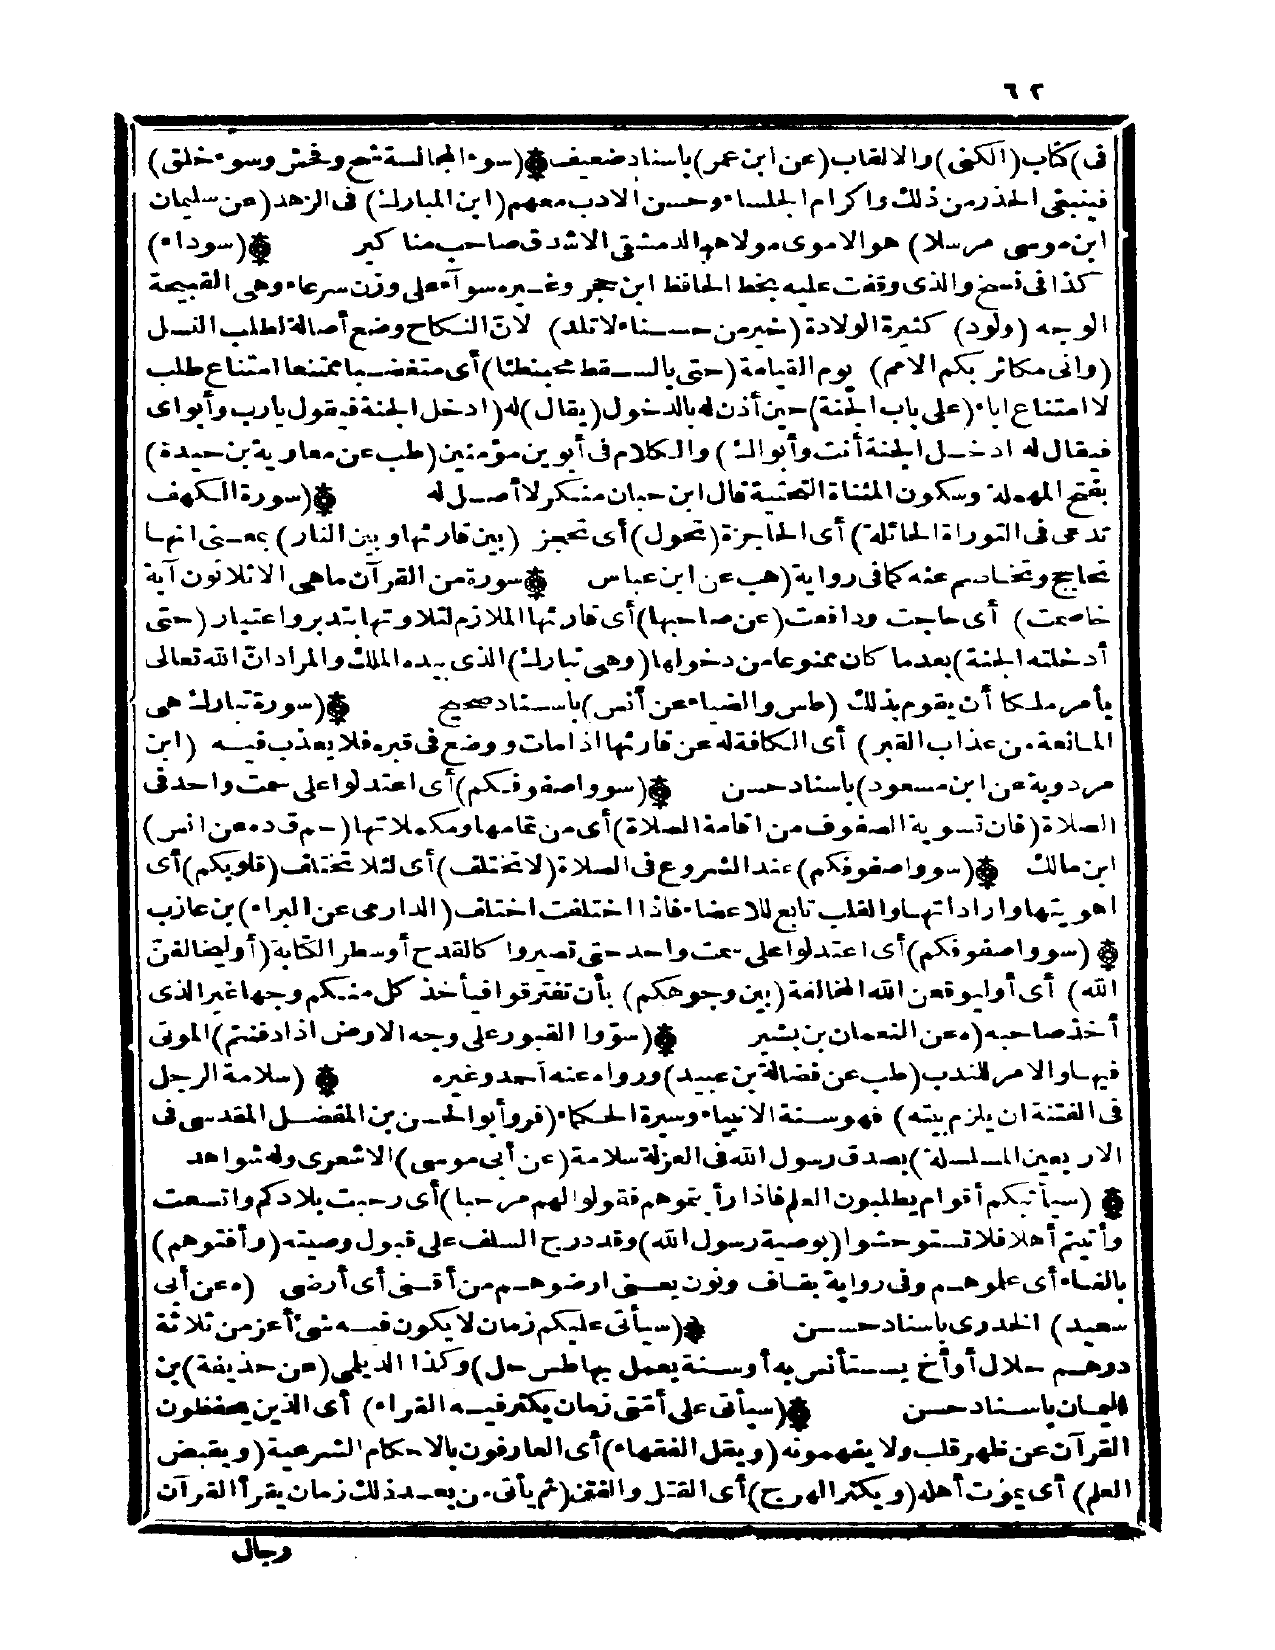 ٦٢
فى) كتاب (الكنى) والالقاب (عن ابن عمر) باسناد ضعيف ۞ (سوء المجالسة شح وفحش وسوء خلق)
فينبغى الحذر من ذلك واكرام الجلساء وحسن الادب معهم (ابن المبارك) فى الزهد (عن سليمان
ابن موسى مرسلا) هو الاموى مولاهم الدمشقى الاشدق صاحب مناكير ۞ (سوداء)
كذا فى نسخ والذى وقفت عليه بخط الحافظ ابن حجر وغيره سوآء على وزن سرعاء وهى القبيحة
الوجه (ولود) كثيرة الولادة (خير من حسناء لا تلد) لان النكاح وضع أصالة لطلب النسل
(وانى مكاثر بكم الامم) يوم القيامة (حتى بالسقط محبنطئا) أى متغضبا ممتنعا امتناع طلب
لا امتناع اباء (على باب الجنة) حين أذن له بالدخول (يقال) له (ادخل الجنة فيقول يا رب وأبواى
فيقال له ادخل الجنة أنت وأبواك) والكلام فى أبوين مؤمنين (طب عن معاوية بن حيدة)
بفتح المهملة وسكون المثناة التحتية قال ابن حبان منكر لا أصل له ۞ (سورة الكهف
تدعى فى التوراة الحائلة) أى الحاجزة (تحول) أى تحجز (بين قارئها وبين النار) بمعنى انها
تحاجج وتخاصم عنه كما فى رواية (هب عن ابن عباس ۞ سورة من القرآن ما هى الا ثلاثون آية
خاصمت) أى حاجت ودافعت (عن صاحبها) أى قارئها الملازم لتلاوتها بتدبر واعتبار (حتى
أدخلته الجنة) بعد ما كان ممنوعا من دخولها (وهى تبارك) الذى بيده الملك والمراد ان الله تعالى
يأمر ملكا أن يقوم بذلك (طس والضياء عن أنس) باسناد صحيح ۞ (سورة تبارك هى
المانعة من عذاب القبر) أى الكافة له عن قارئها اذا مات ووضع فى قبره فلا يعذب فيه (ابن
مردوية عن ابن مسعود) باسناد حسن ۞ (سووا صفوفكم) أى اعتدلوا على سمت واحد فى
الصلاة (فان تسوية الصفوف من اقامة الصلاة) أى من تمامها ومكملاتها (حم ق د ه عن انس)
ابن مالك ۞ (سووا صفوفكم) عند الشروع فى الصلاة (لا تختلف) أى لئلا تختلف (قلوبكم) أى
اهويتها واراداتها والقلب تابع للاعضاء فاذا اختلفت اختلف (الدارمى عن البراء) بن عازب
۞ (سووا صفوفكم) أى اعتدلوا على سمت واحد حتى تصيروا كالقدح أو سطر الكتابة (أو ليخالفن
الله) أى أو ليوقعن الله المخالفة (بين وجوهكم) بأن تفترقوا فيأخذ كل منكم وجها غير الذى
أخذ صاحبه (ه عن النعمان بن بشير ۞ (سوّوا القبور على وجه الارض اذا دفنتم) الموتى
فيها والامر للندب (طب عن فضالة بن عبيد) ورواه عنه أحمد وغيره ۞ (سلامة الرجل
فى الفتنة ان يلزم بيته) فهو سنة الانبياء وسيرة الحكماء (فر وأبو الحسن بن المفضل المقدسى فى
الاربعين المسلسلة) بصدق رسول الله فى العزلة سلامة (عن أبى موسى) الاشعرى وله شواهد
۞ (سيأتيكم أقوام يطلبون العلم فاذا رأيتموهم فقولوا لهم مرحبا) أى رحبت بلادكم واتسعت
وأتيتم أهلا فلا تستوحشوا (بوصية رسول الله) وقد درج السلف على قبول وصيته (وأفتوهم)
بالفاء أى علموهم وفى رواية بقاف ونون يعنى ارضوهم من أقنى أى أرضى (ه عن أبى
سعيد) الخدرى باسناد حسن ۞ (سيأتى عليكم زمان لا يكون فيه شئ أعز من ثلاثة
درهم حلال أو أخ يستأنس به أو سنة يعمل بها طس حل) وكذا الديلى (عن حذيفة) بن
اليمان باسناد حسن ۞ (سيأتى على أمتى زمان يكثر فيه القراء) أى الذين يحفظون
القرآن عن ظهر قلب ولا يفهمونه (ويقل الفقهاء) أى العارفون بالاحكام الشرعية (ويقبض
العلم) أى يموت أهله (ويكثر الهرج) أى القتل والفتن (ثم يأتى من بعد ذلك زمان يقرأ القرآن
رجال